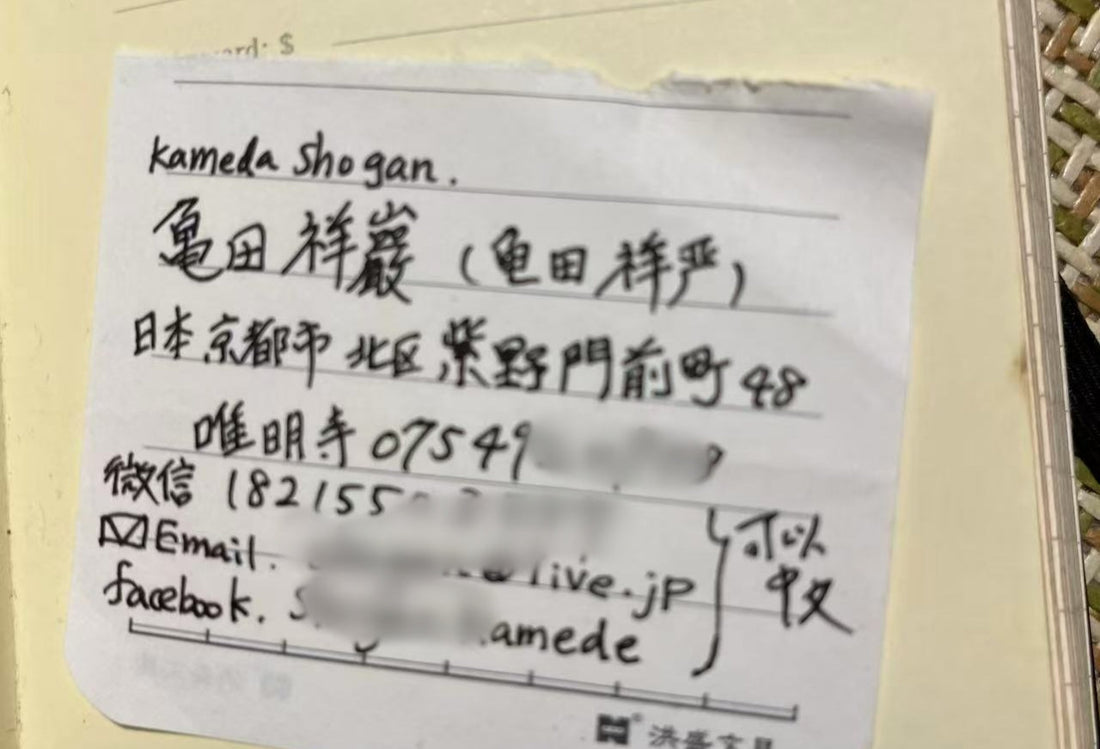 ard: $
Kameda Shogan.
亀田祥巖（龟田祥严）
日本京都市北区紫野門前町48
唯明寺 07549
微信 182155
Email. live.jp
facebook. S amede
可以
中文
洪盛文具